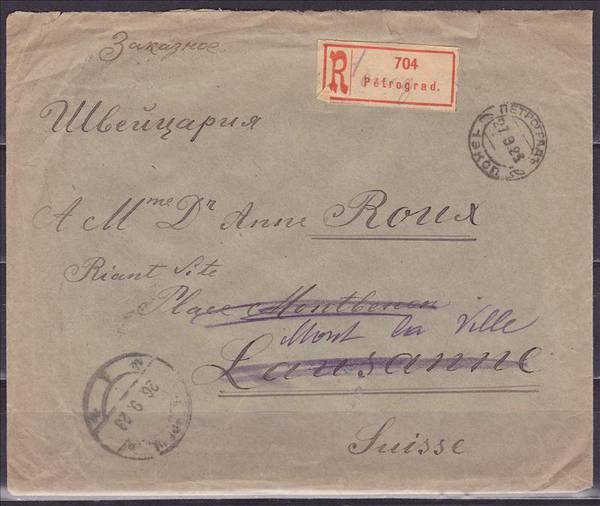 Заказное
R 704
Pétrograd.
Швейцария
ПЕТРОГРАДЪ
27 9 23
A Mme Dr Anne Roux
Riant Site
Place Montbenon
Mont la Ville
Lausanne
26 9 23
Suisse